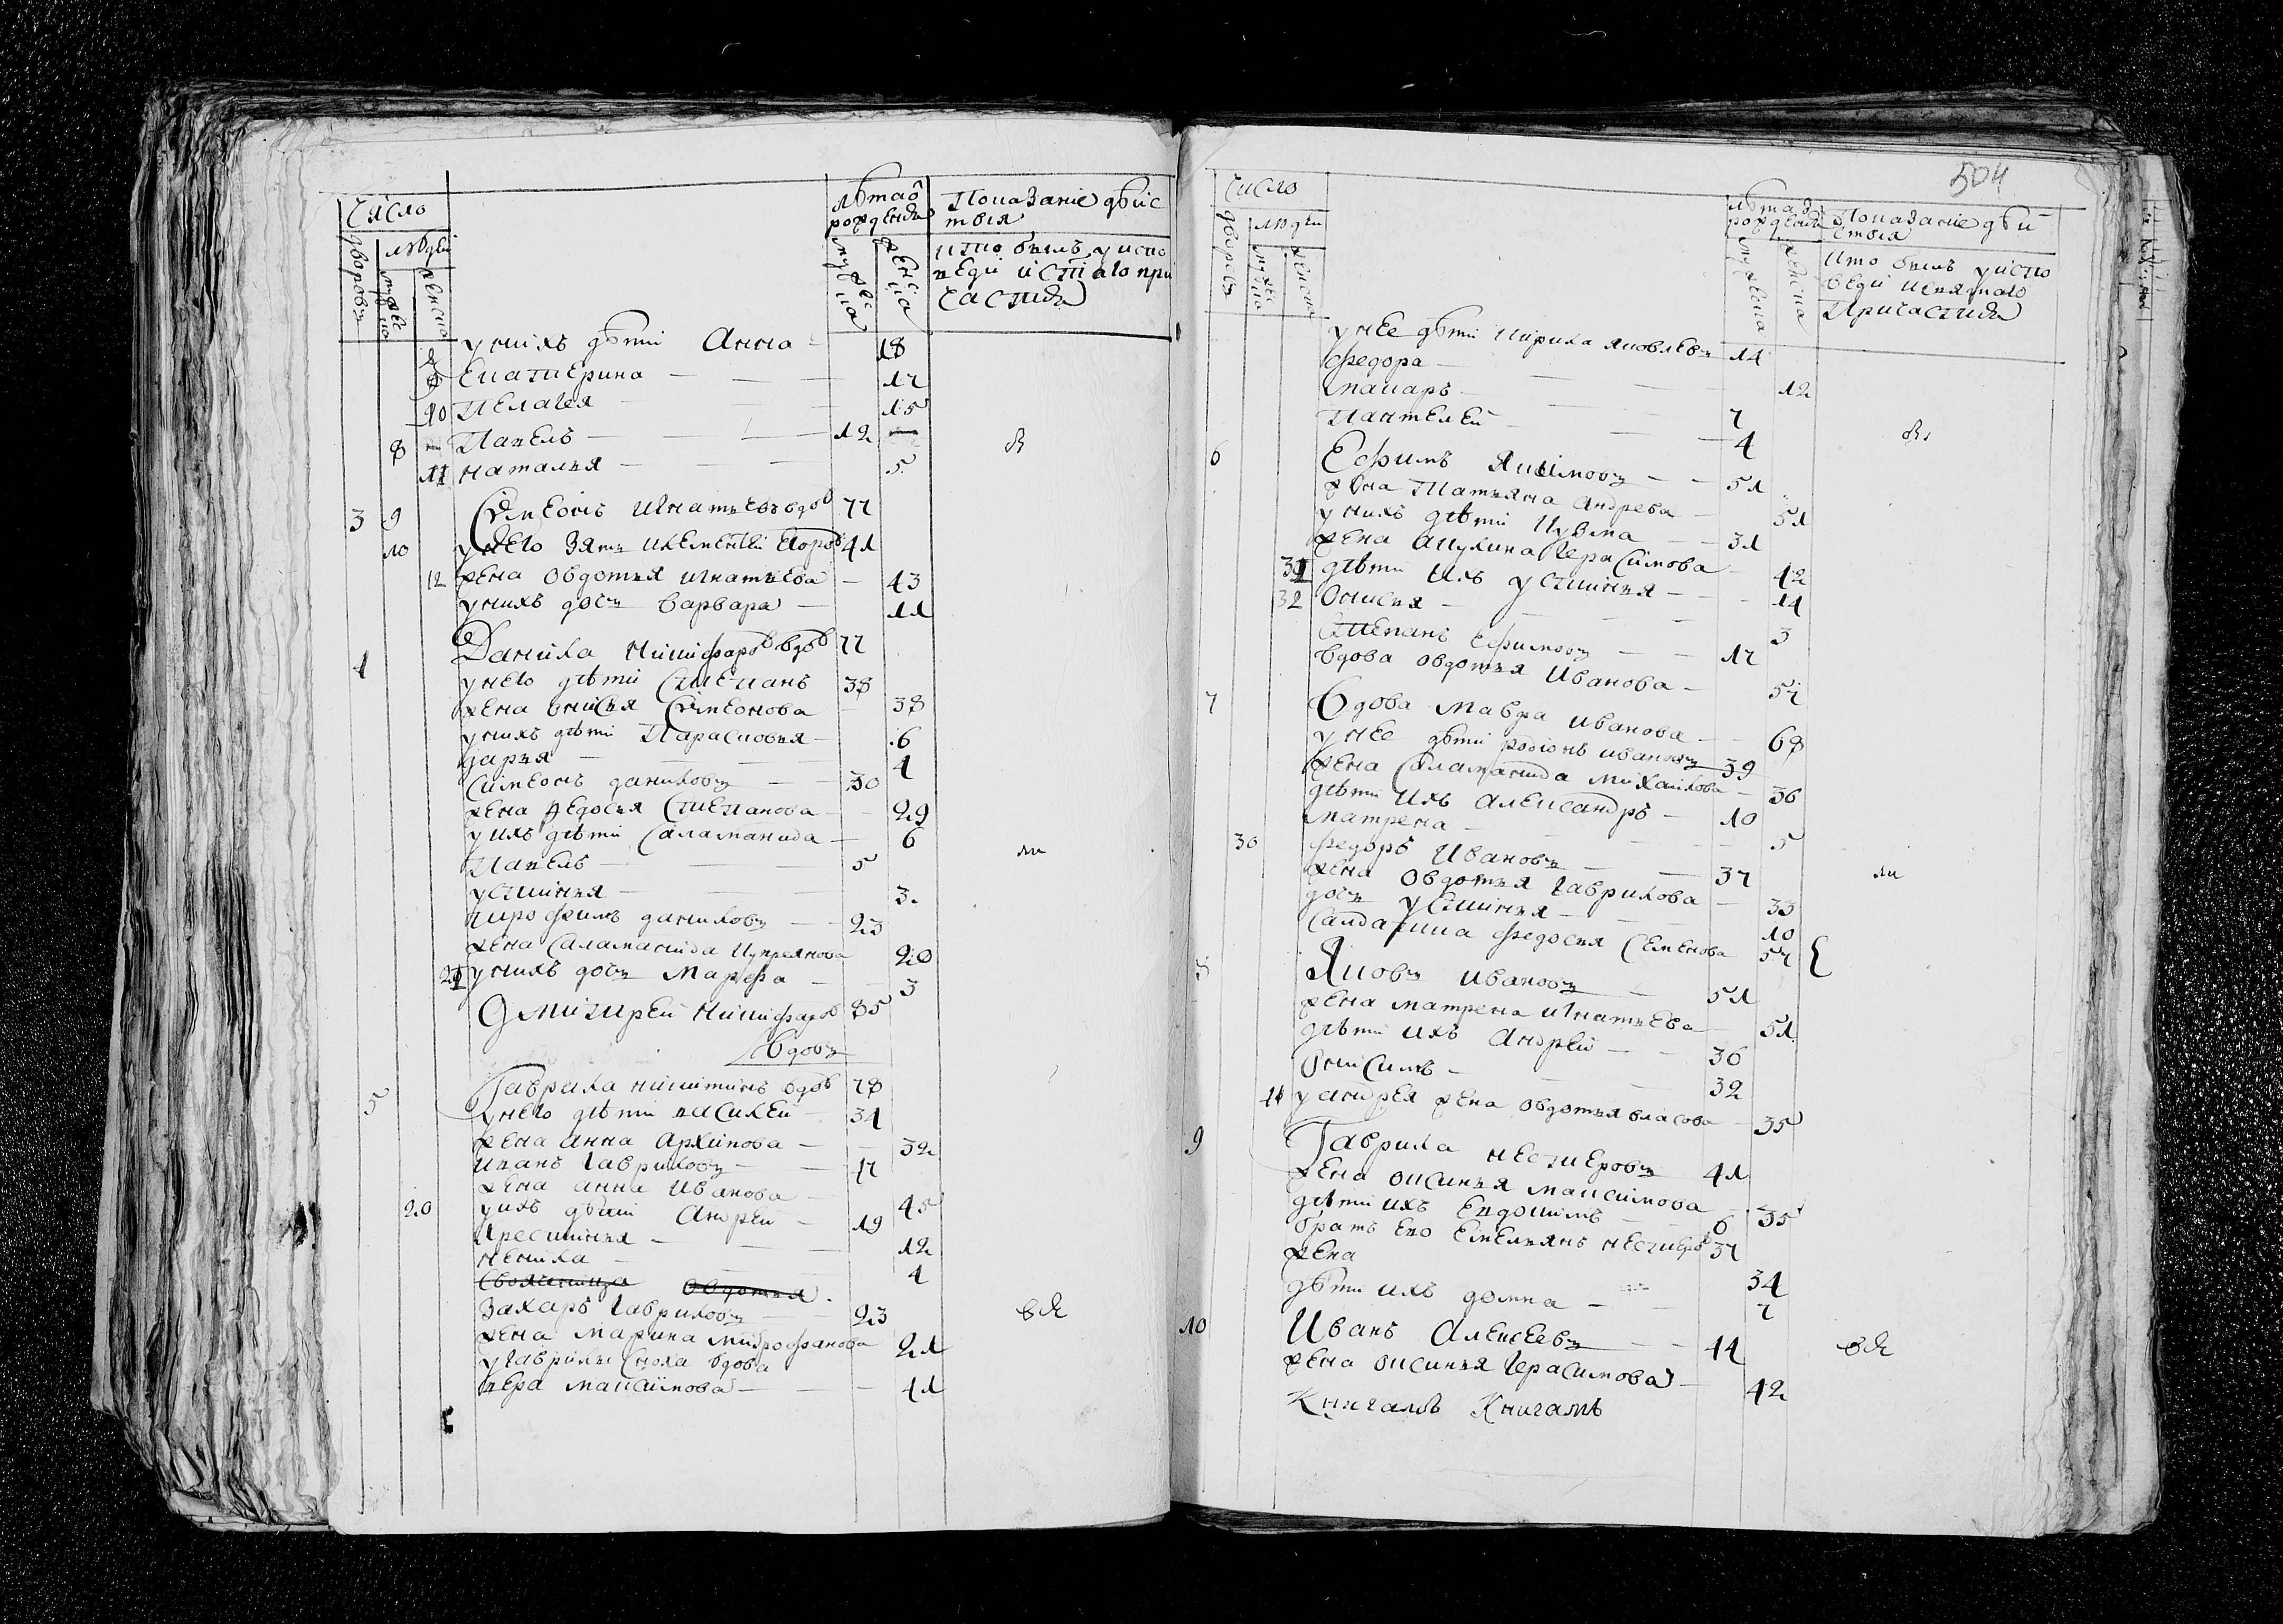 Число
дворовъ
людей
мужеска
женска
Лѣта ѿ рожденія
мужеска
женска
Показаніе дѣйствія
кто былъ у исповеди и стіаго причастия
у нихъ дѣти Анна 18
Екатерина 17
10 Пелагея 15
8 Павелъ 12
11 Наталья 5
3 9 Симеонъ Игнатьевъ вдов 77
10 у него зять Климентей Егоров 41
12 жена Овдотья Игнатьева 43
у нихъ дочь Варвара 11
4 Данила Никифаров вдов 77
у него дѣти Степанъ 38
жена Онисья Симеонова 38
у нихъ дѣти Парасковья 6
Дарья 4
Симеонъ Даниловъ 30
жена Федосья Степанова 29
у ихъ дѣти Саламанида 6
Павелъ 5
Устинья 3
Даниловъ 23
жена Саламанида Купреянова 20
21 у нихъ дочь Марфа 3
Дмитирей Никифаров 85
вдовъ
5 Гаврила Никитинъ вдов 78
у него дѣти Василей 34
жена Анна Архипова 32
Иванъ Гавриловъ 47
жена Анна Иванова 45
20 у ихъ дѣти Андрей 19
Крестинья 12
Ненила 4
Своячиница Овдотья
Захаръ Гавриловъ 23
жена Марина Митрофанова 21
у Гаврилы сноха вдова
Вера Максимова 41
504
Число
дворовъ
людей
мужеска
женска
Лѣта ѿ рожденія
мужеска
женска
Показаніе дѣйствия
кто былъ у исповеди и святаго
Причастия
у нее дѣти Кирила Яковлевъ 14
Федора 12
Макаръ 7
Пантелей 4
6 Ефимъ Якимовъ 51
жена Татьяна Андрева 51
у нихъ дѣти Кузма 31
жена Акулина Герасимова 42
31 дѣти ихъ Устинья 14
32 Онисья 3
Степанъ Ефимовъ 17
вдова Овдотья Иванова 57
7 Вдова Мавра Иванова 68
у нее дѣти Родионъ Ивановъ 39
жена Саламанида Михаилова 36
дѣти ихъ Александръ 10
Матрена 5
30 Федоръ Ивановъ 37
жена Овдотья Гаврилова 33
дочь Устинья 10
Салдатика Федосья Семенова 57
Яковъ Ивановъ 51
жена Матрена Игнатьева 51
дѣти ихъ Андрей 36
Онисимъ 32
у Андрея жена Овдотья Власова 35
9 Гаврила Нестеровъ 41
жена Оксинья Максимова 35
дѣти ихъ Евдокимъ 6
братъ ево Емельянъ Нестеров 37
жена 34
дѣти ихъ Домна 7
10 Иванъ Алексеевъ 44
жена Оксинья Герасимова 42
Книгамъ Книгамъ